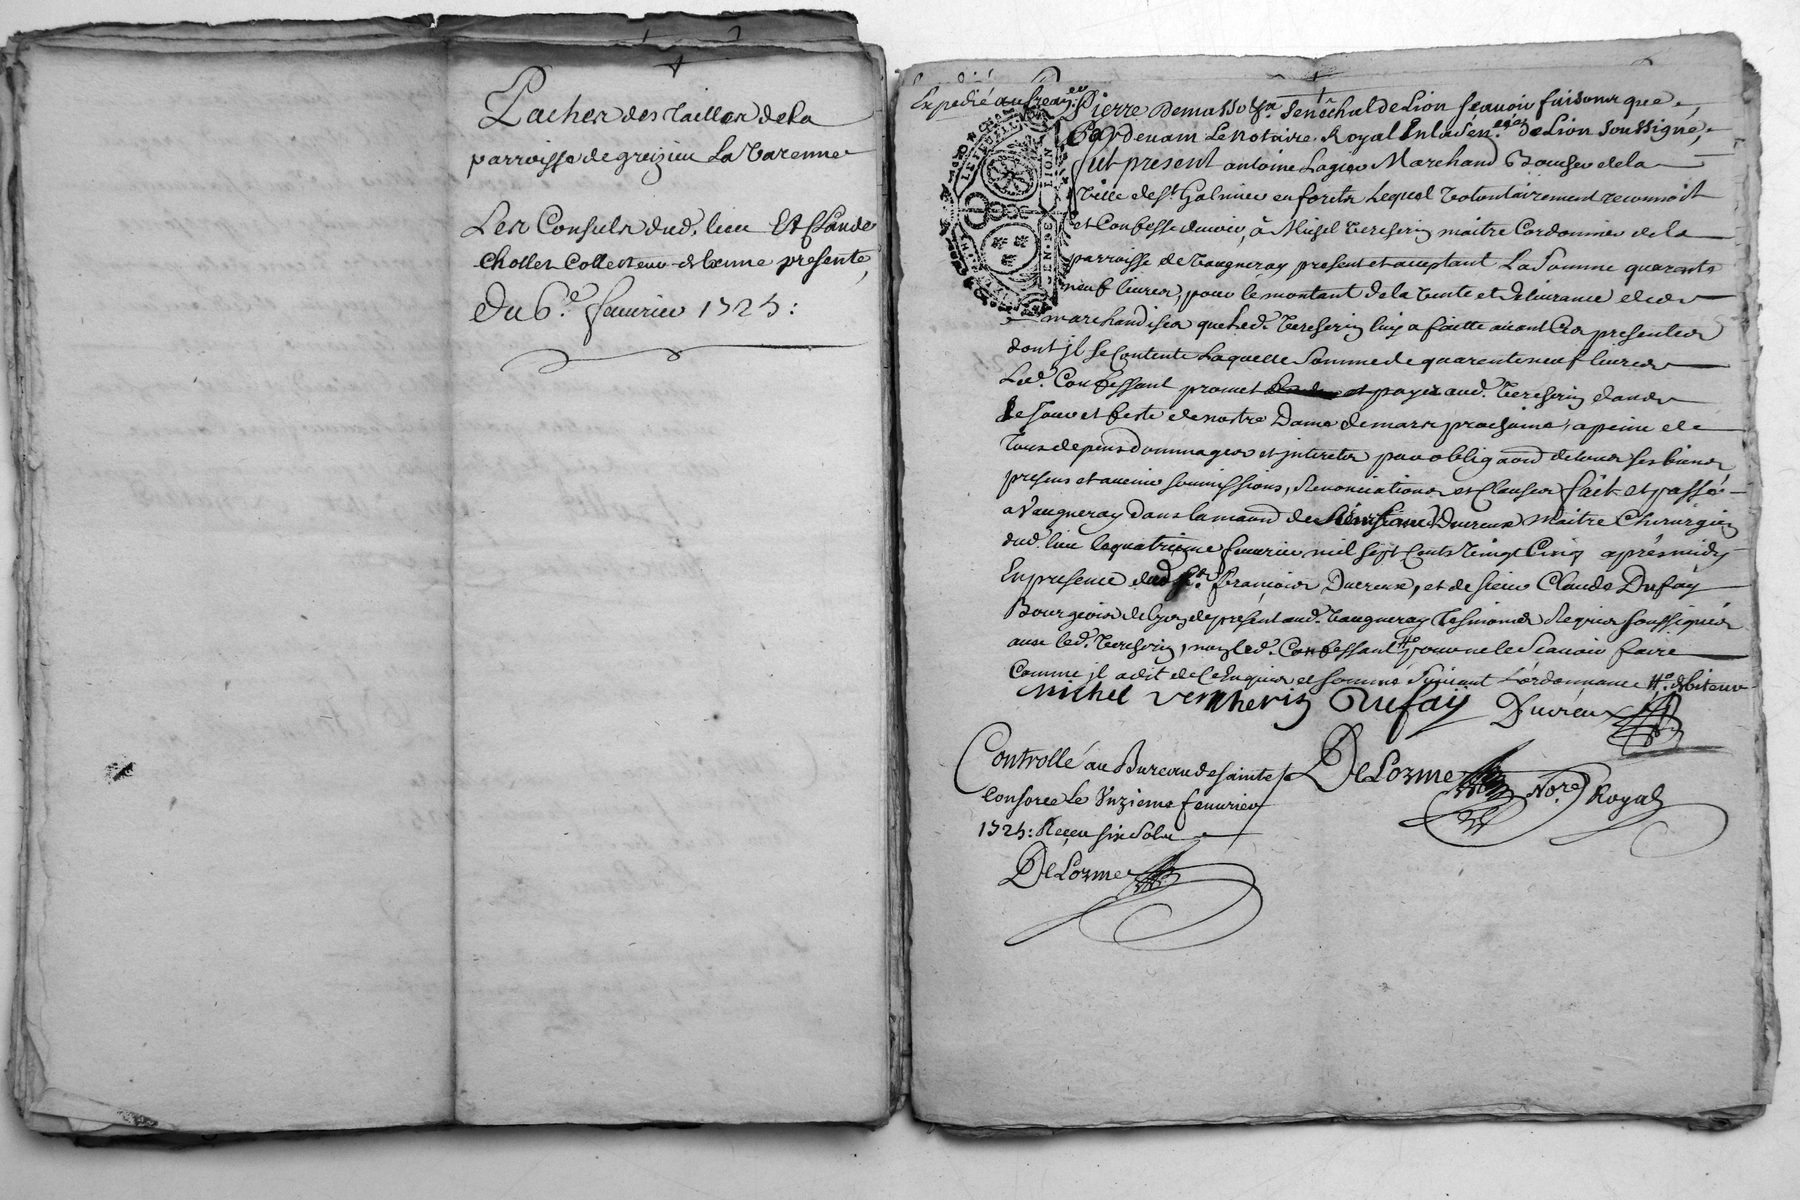 Paches des Tailles de la
parroisse de greizieu La Varenne
Les Consuls dud. lieu Et Claude
Chollet Collecteur de Lannée presente
Du 6.e feuurier 1725:
Expedié au
Pierre Demasso &a. Senêchal de Lion scauoir faisons que
Pardeuant Le Notaire Royal En la Sen.ée de Lion soussigné,
fut present antoine Lagier Marchand Boucher de la
Ville de St. Galmier en forets Lequel Volontairement reconnoist
et Confesse deuoir, à Michel Vercherin maitre Cordonnier de la
parroisse de Vaugneray present et acceptant La Somme quarente
neuf liures, pour le montant de la Vente et deliurance des
marchandises que led. Vercherin luy a faitte auant Ces presentes
dont jl se Contente Laquelle Somme de quarente neuf liures
Led. Confessant promet et payer aud. Vercherin dans
Le jour et feste de nostre Dame de mars prochaine, a peine de
tous depens dommages et jnterets par obligaõn de tous ses biens
presens et auenir soumissions, Renonciations et Clauses fait et passé
a Vaugneray dans la maison de Ducreux Maitre Chirurgien
dud. lieu le quatrieme feuurier mil sept Cents Vingt Cinq aprés midy
En presence dud. Sr. françois Ducreux, et de sieur Claude Dufaÿ
Bourgeois de Lyon de present aud. Vaugneray Tesmoins Requis soussignés
auec led. Vercherin, non led. Confessant # pour ne le Scauoir faire
Comme jl a dit de Ce Enquis et sommé Suiuant L'ordonnance # debiteur
michel vercherin Dufaÿ Ducreux
DeLorme Nore. Royal
Controllé au Bureau de sainte
Consorce Le Vnzieme feuurier
1725: Reçeu six Sols
DeLorme